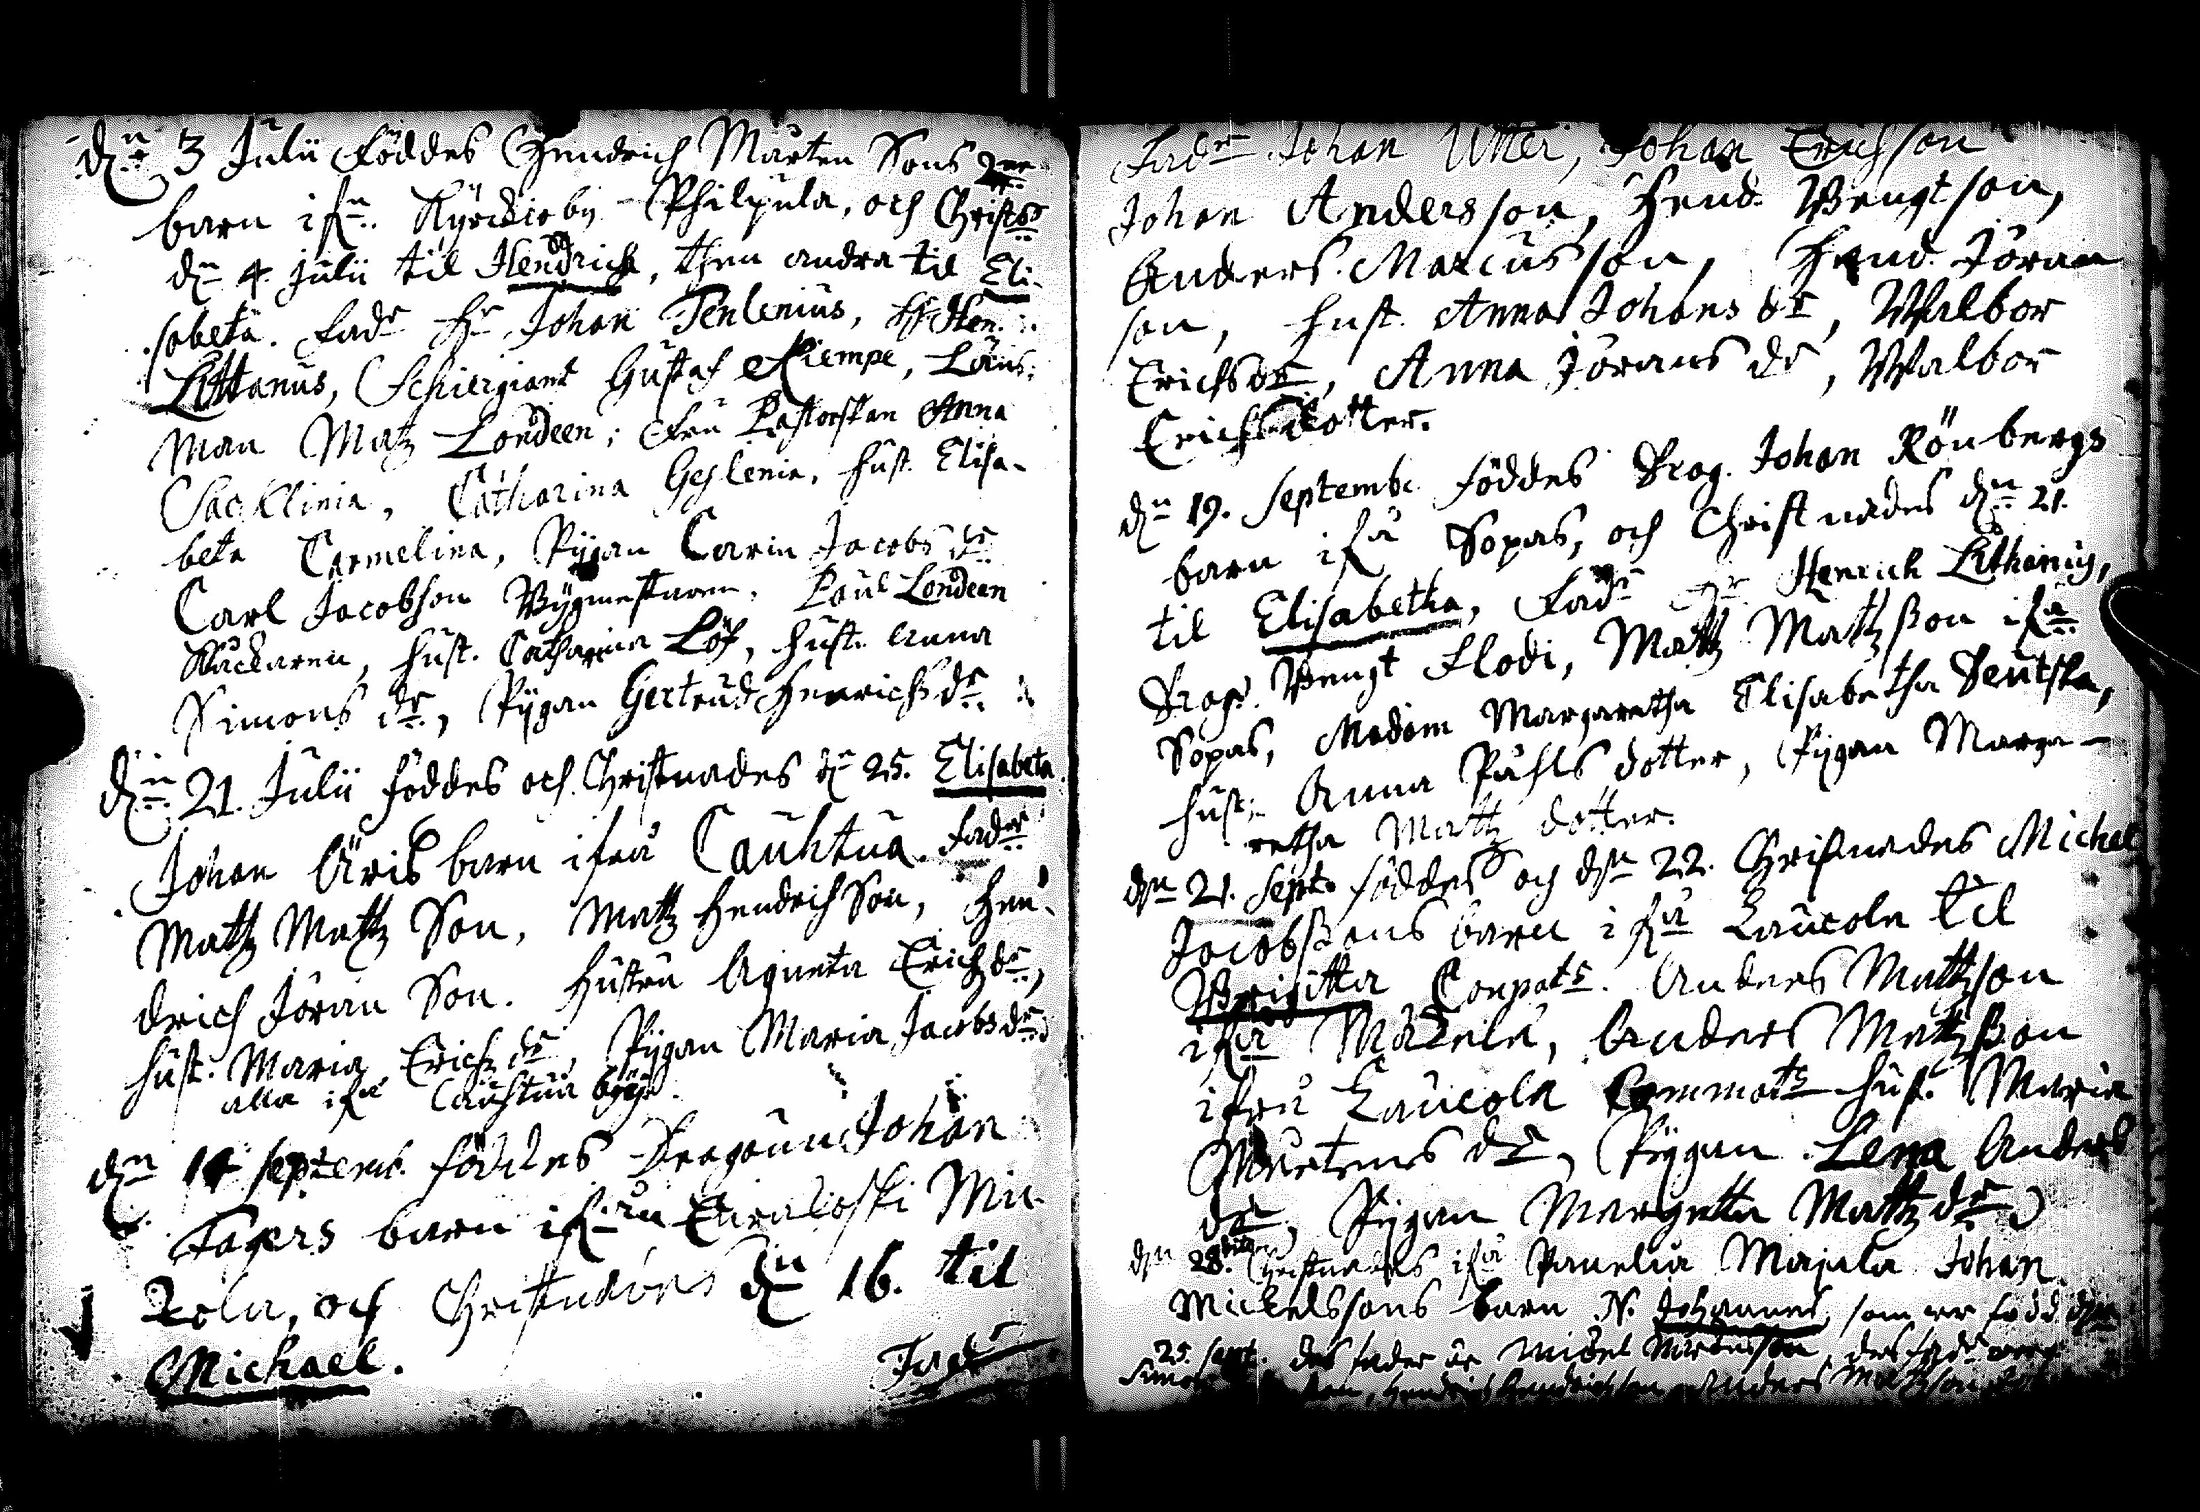 dn 3 Julii föddes Hendrich Mårten Sons 2ne
barn ifn. Kÿrckioby Philpula, och Christs
dn 4. Julii til Hendrich, then andra til Eli-
sabeta. Fadr Hr Johan Tenlenius, Hr Hen.
Littanus, Schiergiant Gustaf Kiempe, Läns-
man Matz Londeen; Fru Pastorskan Anna
Sacklinia, Catharina Geslenia, hust. Elisa-
beta Carmelina, Pÿgan Carin Jacobs dr
Carl Jacobson Bÿgmestaren, Paul Londeen
Klåckaren, hust. Catharina Löf, hust. Anna
Simons dr, Pÿgan Gertrud Henrichs dr.
dn 21. Julii föddes och Christnades dn 25. Elisabeta
Johan Äris barn ifrå Cauhtua. Fadr
Mattz Mattz Son, Mattz Hendrich Son, Hen-
drich Jöran Son. Hustru Agneta Erichz dr,
hust. Maria Erichz dr, Pÿgan Maria Jacobs dr,
alla ifrå Cauhtua bÿ
dn 14 septemb. föddes Dragoun Johan
Fagers barn ifrån Mic-
kola, och Christnades dn 16. til
Michael.
Fadr
Fadr Johan Utter, Johan Erichsson
Johan Andersson, Hend. Bengtson,
Anders Marcusson, Hend. Jöran
son, hust. Anna Johans dr, Walbor
Erichsdr, Anna Jörans dr, Walbor
Erichsdotter.
dn 19. Septembr föddes Drag. Johan Rönbergs
barn ifrå Sopas, och Christnades dn 21.
til Elisabetha, Fadr Hr Henrich Lithenius,
Drag. Bengt Flodi, Mattz Mattzßon ifrå
Sopas, Madam Margaretha Elisabetha Deutska,
hust. Anna Påhls dotter, Pÿgan Marga-
retha Mattz dotter.
dn 21. Sept. föddes och dn 22. Christnades Michel
Jacobßons barn ifrå Laucola til
Brigitta Conpatr. Anders Mattzson
ifrå Mäkelä, Anders Mattzßon
ifrå Laucola Commatr hust. Maria
Mårtens dr, Pÿgan Lena Anders
dr, Pÿgan Margeta Mattz dr
dn 28. Christnades ifrå Panelia Majula Johan
Mickelssons barn N. Johannes, som är född dn
25. sept. des fader är Michel Mårtensson, des fadr
Simon Hendrich Hendrichson, Anders Mattzson